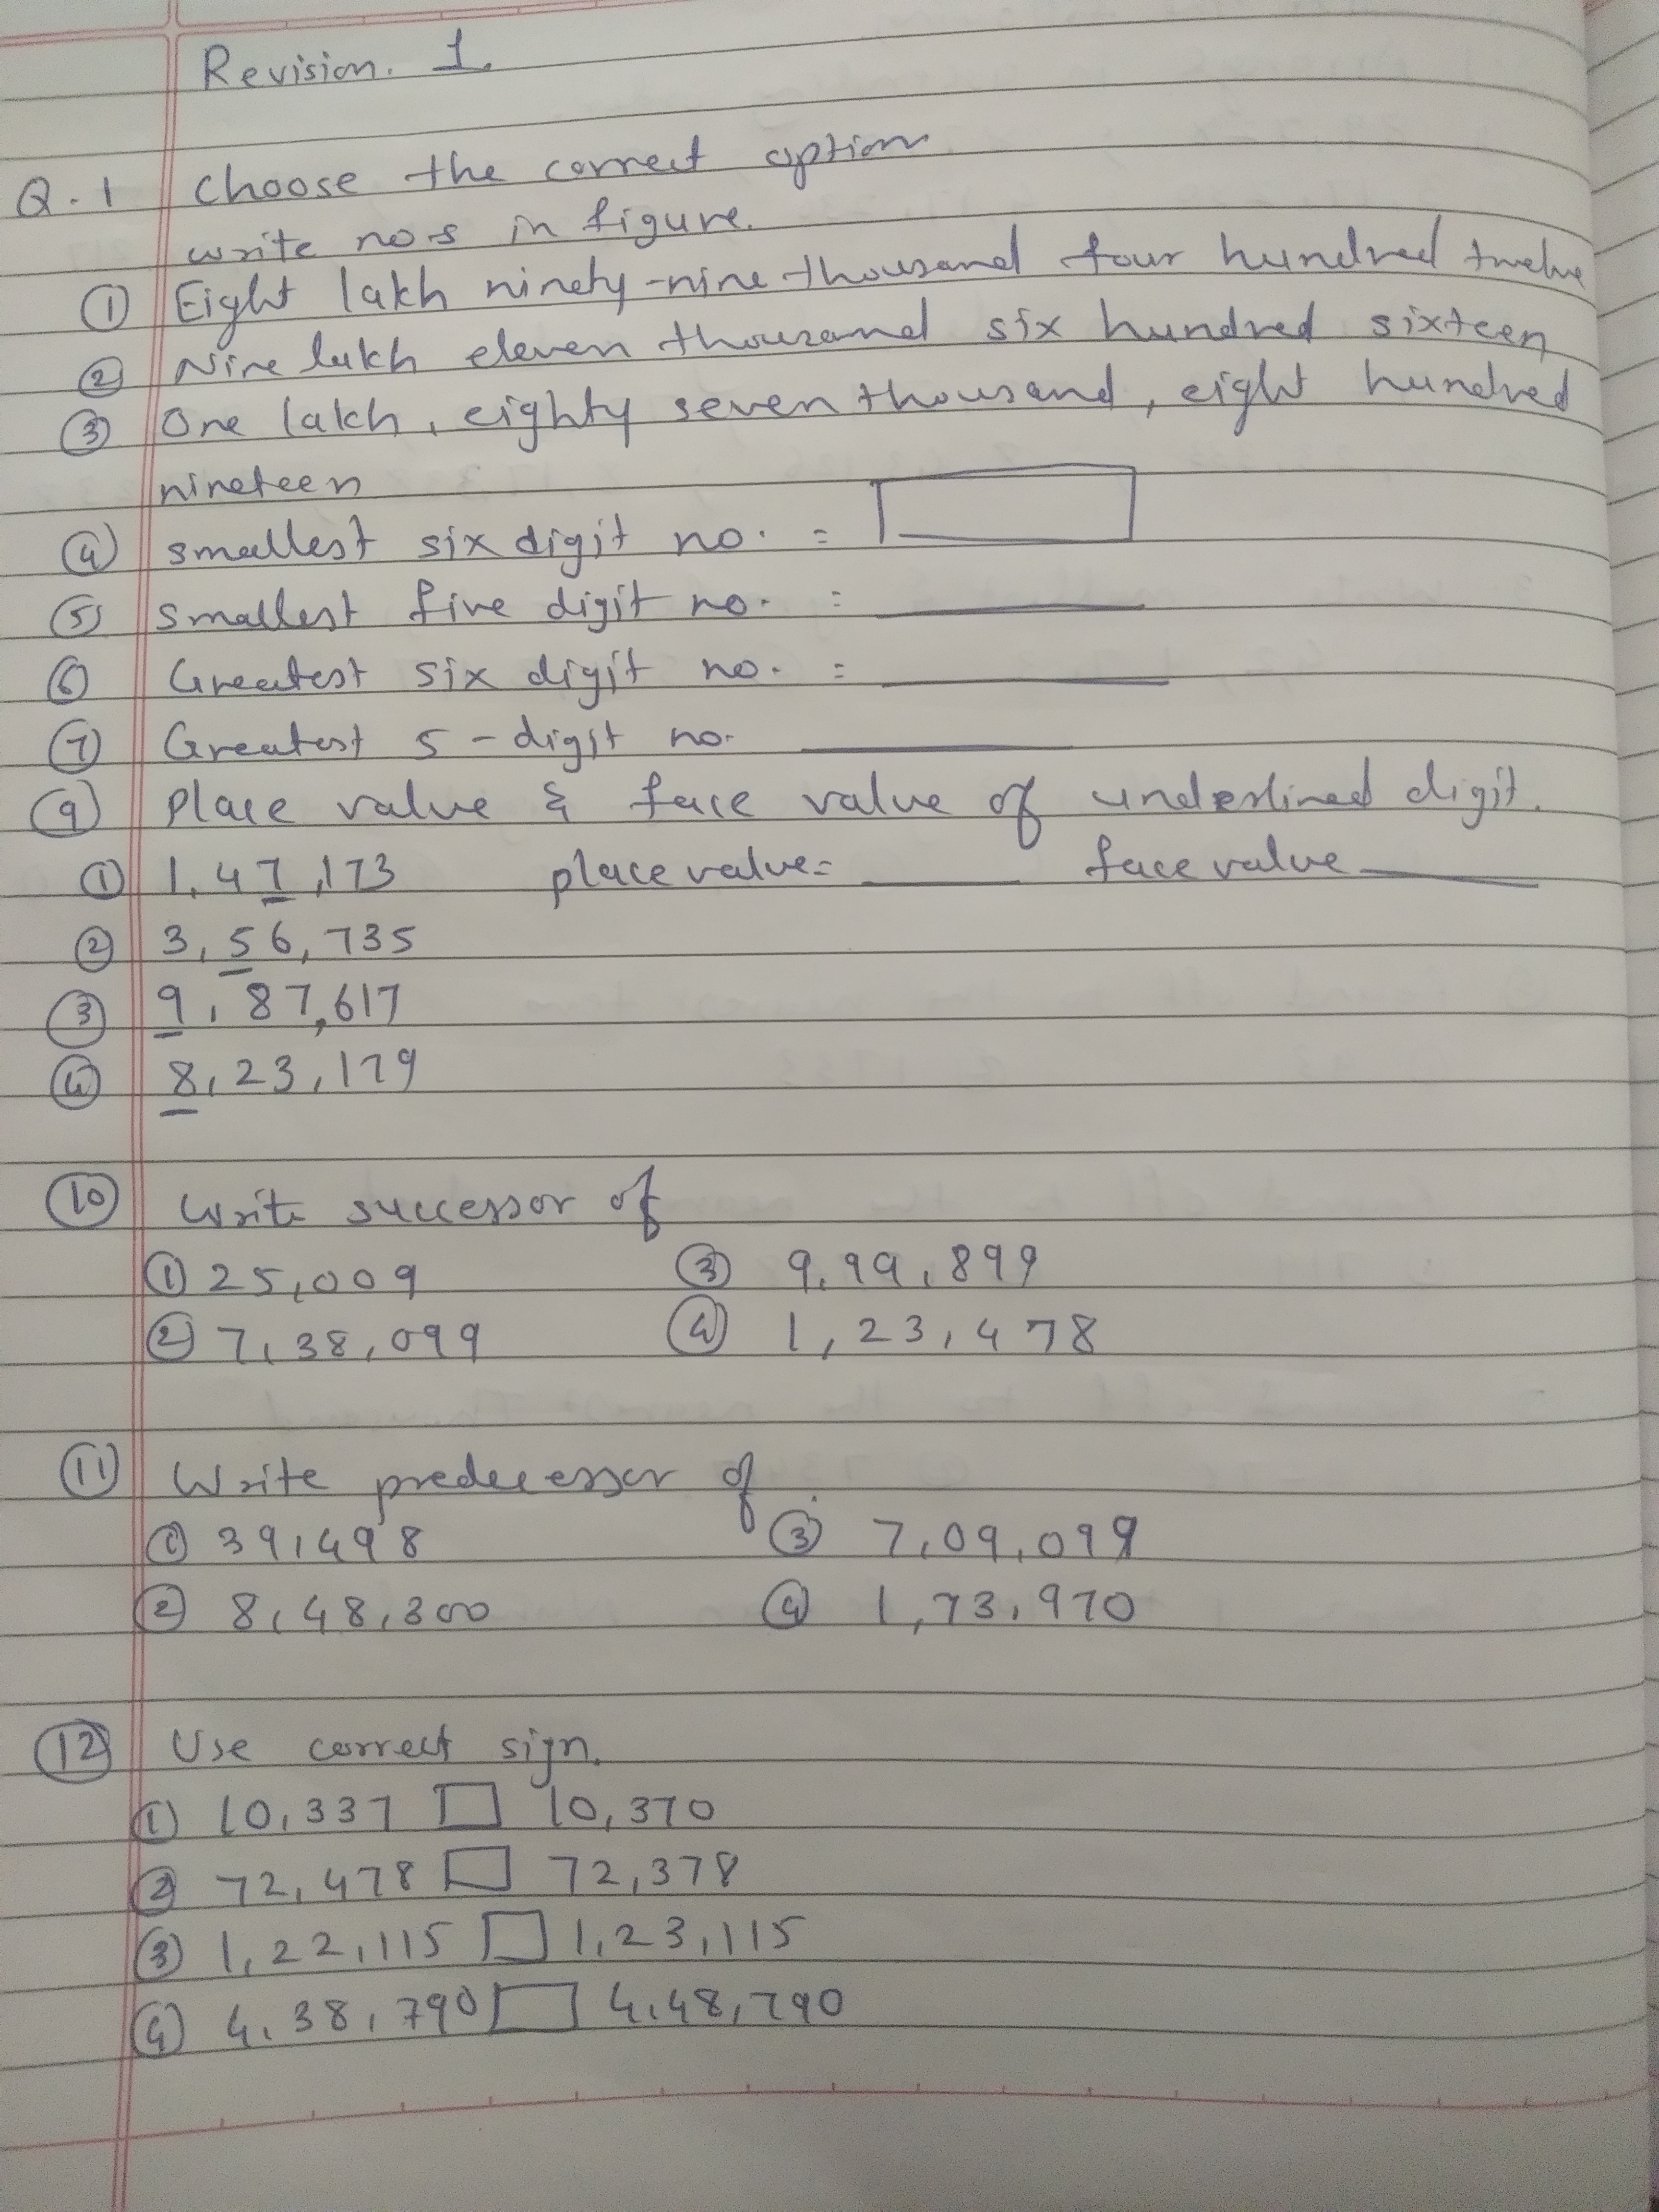 Revision. 1.
Q.1 choose the correct option
write nos in figure.
① Eight lakh ninety-nine thousand four hundred twelve
② Nine lakh eleven thousand six hundred sixteen
③ One lakh, eighty seven thousand, eight hundred
nineteen
④ smallest six digit no. =
⑤ smallest five digit no. =
⑥ Greatest six digit no. =
⑦ Greatest 5-digit no.
⑨ Place value & face value of underlined digit.
① 1,47,173 place value= face value
② 3,56,735
③ 9,87,617
④ 8,23,179
⑩ Write successor of
① 25,009 ③ 9,99,899
② 7,38,099 ④ 1,23,478
⑪ Write predecessor of
① 39,498 ③ 7,09,099
② 8,48,300 ④ 1,73,970
⑫ Use correct sign.
① 10,337 □ 10,370
② 72,478 □ 72,378
③ 1,22,115 □ 1,23,115
④ 4,38,790 □ 4,48,790